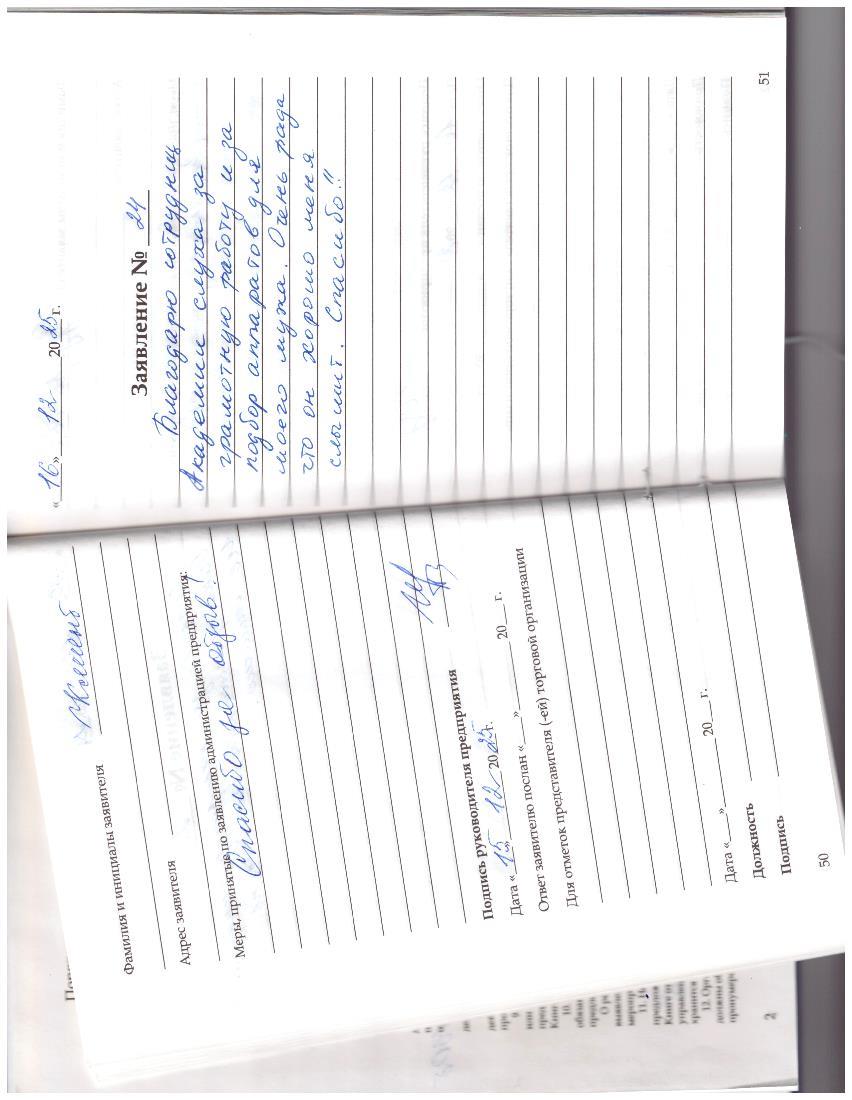 Фамилия и инициалы заявителя
Адрес заявителя
Меры, принятые по заявлению администрацией предприятия:
Спасибо за отзыв!
Подпись руководителя предприятия
Дата «15 12 2025г.
Ответ заявителю послан «___»________20___г.
Для отметок представителя (-ей) торговой организации
Дата «___»________20___г.
Должность
Подпись
50
«16» 12 2025г.
Заявление № 24
Благодарю сотрудниц
Академии слуха за
грамотную работу и за
подбор аппаратов для
моего мужа. Очень рада
что он хорошо меня
слышит. Спасибо!!
51
2